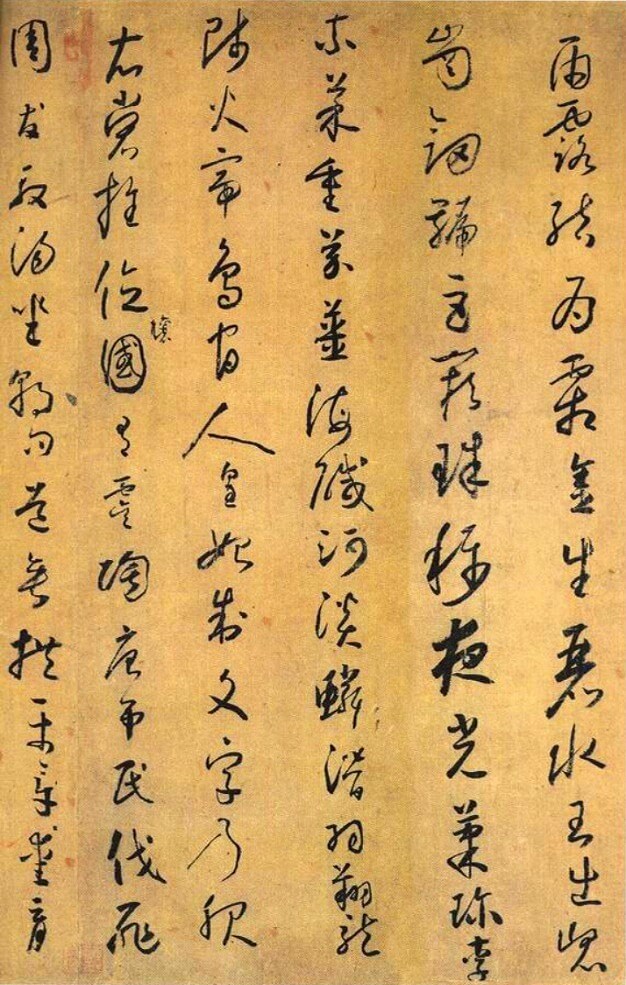 雨露結為霜金生麗水玉出崑
崗劍號巨闕珠稱夜光菓珍李
柰菜重芥薑海鹹河淡鱗潛羽翔龍
師火帝鳥官人皇始制文字乃服
衣裳推位讓國有虞陶唐弔民伐罪
周發殷湯坐朝問道垂拱平章愛育